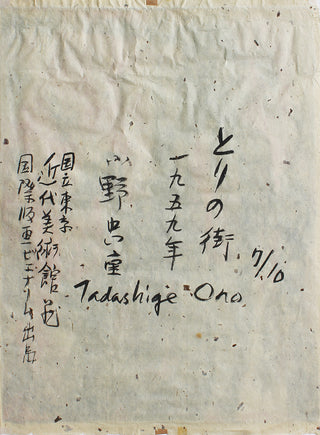 とりの街 7/10
一九五九年
小野忠重
Tadashige Ono
国立東京
近代美術館蔵
国際版画ビエナーレ出品